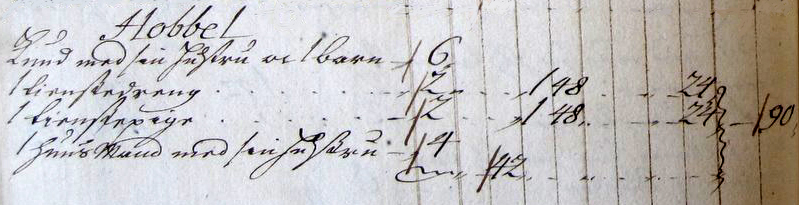 Hobbel
Knud med sin Hustru oc 1 barn 6
1 tienstedreng 2 1 48 24
1 tienstepige 2 1 48 24 190
1 Huus Mand med sin Hustru 4
42